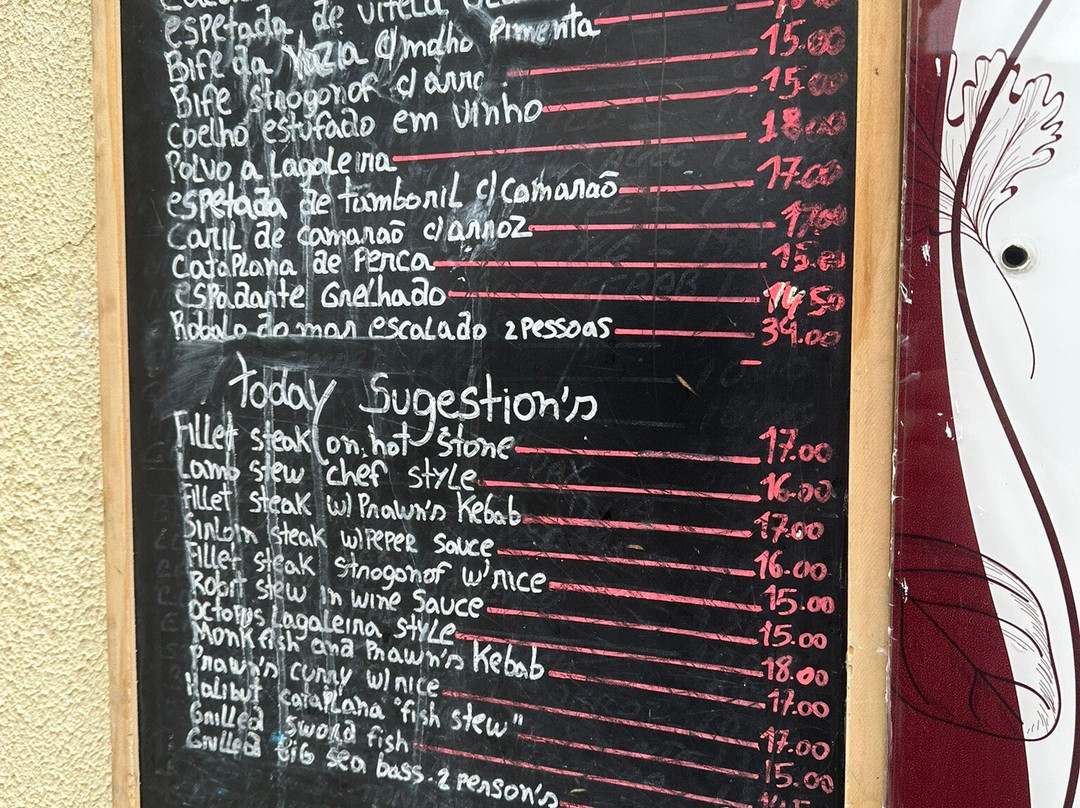 espetada de vitela
Bife da Vazia c/molho Pimenta 15.00
Bife strogonof c/arro 15.00
Coelho estufado em vinho 18.00
Polvo a Lagoleira 17.00
espetada de tamboril c/camaraõ 17.00
Caril de camaraõ c/arroz 15.00
CataPlana de Perca 14.50
espadante Grelhado 34.00
Robalo do mar escalado 2 Pessoas
today Sugestion's
Fillet steak on hot stone 17.00
Lamb stew chef style 16.00
fillet steak w/Prawn's Kebab 17.00
Sirloin steak w/PePER Sauce 16.00
Fillet steak strogonof w'rice 15.00
Robit stew in wine Sauce 15.00
Octopus Lagaleira style 18.00
Monkfish and Prawn's Kebab 17.00
Prawn's curry w/rice 17.00
Halibut cataplana "fish stew" 15.00
Grilled sword fish
Grilled Big Sea bass. 2 Person's